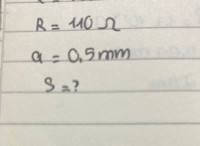 R = 110 Ω
a = 0,5mm
S = ?